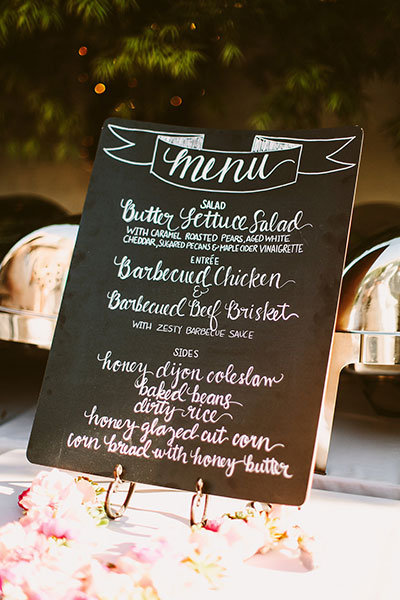 menu
SALAD
Butter Lettuce Salad
WITH CARAMEL ROASTED PEARS, AGED WHITE
CHEDDAR, SUGARED PECANS & MAPLE CIDER VINAIGRETTE
ENTRÉE
Barbecued Chicken
&
Barbecued Beef Brisket
WITH ZESTY BARBECUE SAUCE
SIDES
honey dijon coleslaw
baked beans
dirty rice
honey glazed cut corn
corn bread with honey butter